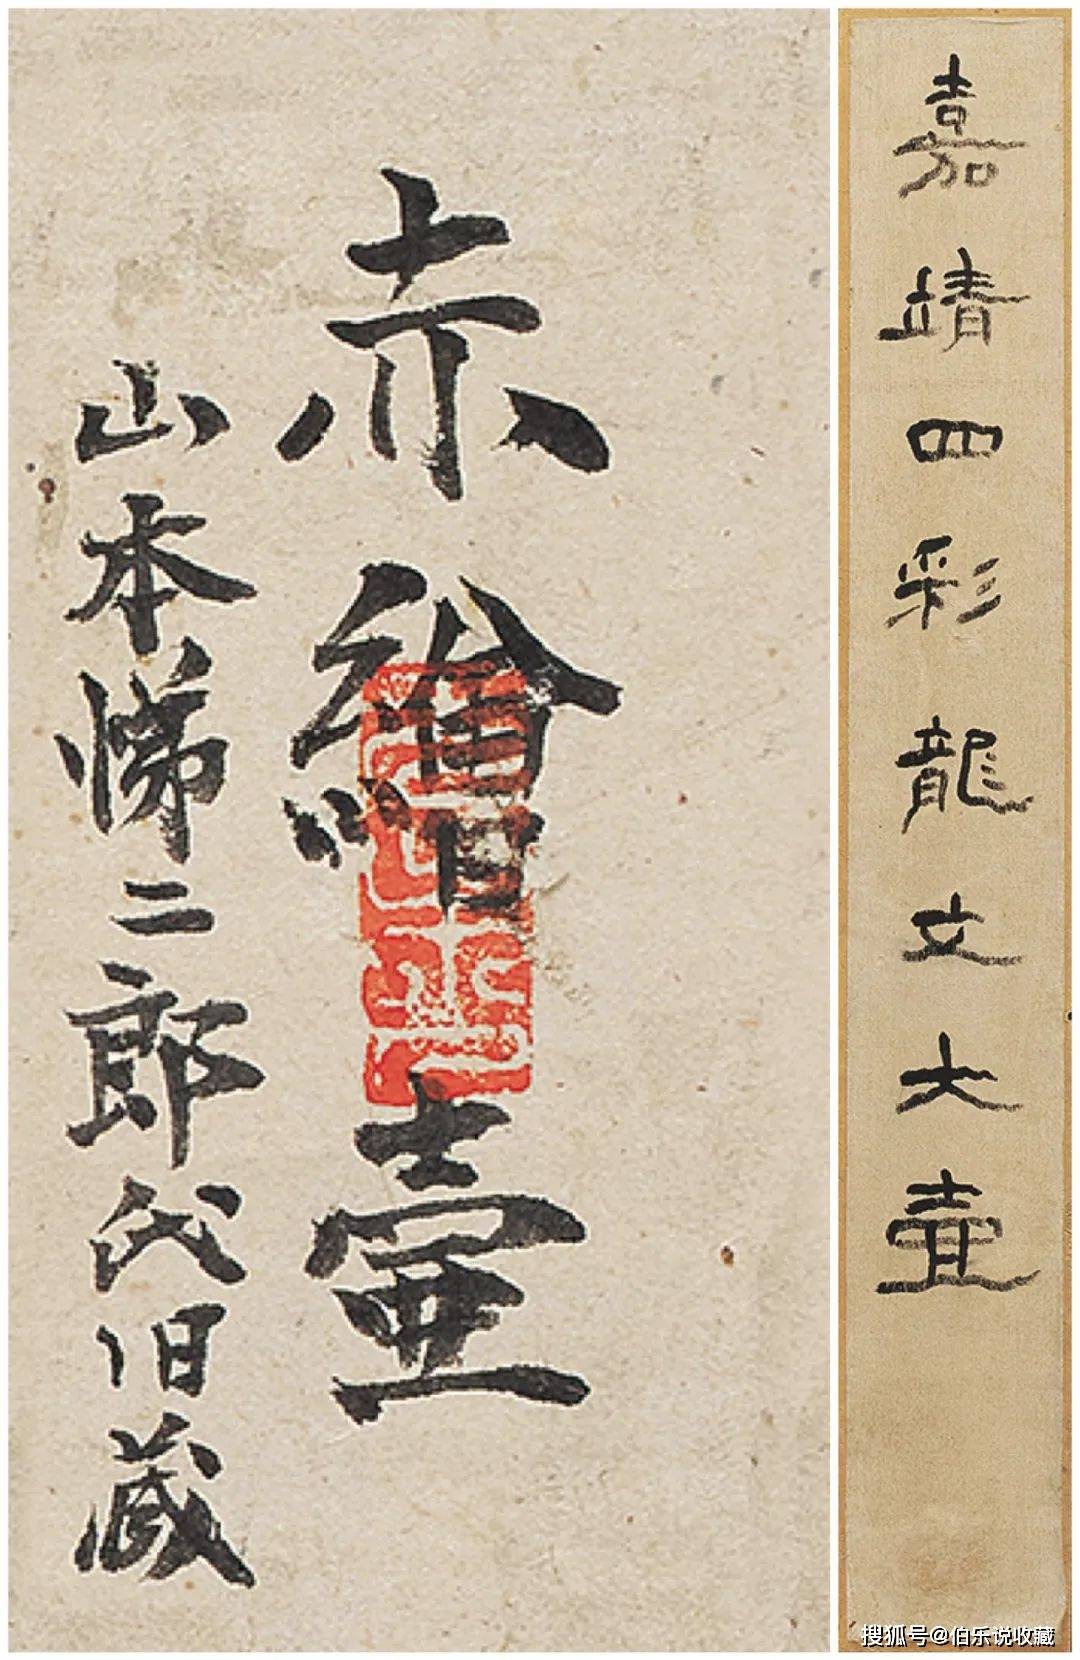 嘉靖四彩龍文大壷
赤繪壷
山本悌二郎氏旧蔵
搜狐号@伯乐说收藏